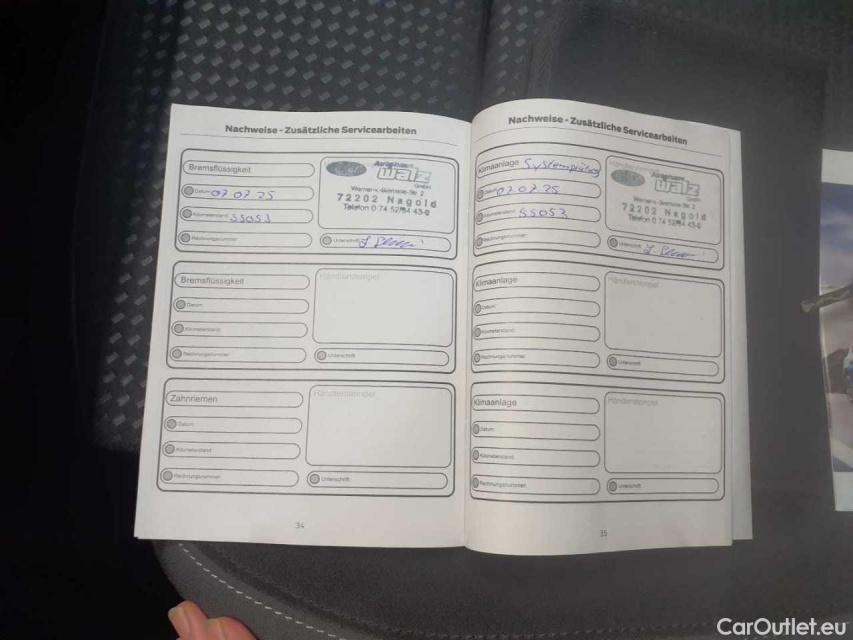 Nachweise - Zusätzliche Servicearbeiten
Bremsflüssigkeit
Datum 07.07.25
Kilometerstand 55053
Rechnungsnummer
Autohaus
Walz
GmbH
72202 Nagold
Telefon 0 74 52/84 43-0
Unterschrift
Bremsflüssigkeit
Datum
Kilometerstand
Rechnungsnummer
Händlerstempel
Unterschrift
Zahnriemen
Datum
Kilometerstand
Rechnungsnummer
Händlerstempel
Unterschrift
34
Nachweise - Zusätzliche Servicearbeiten
Klimaanlage Systemprüfung
Datum 07.07.25
Kilometerstand 55053
Rechnungsnummer
Autohaus
Walz
GmbH
72202 Nagold
Telefon 0 74 52/84 43-0
Unterschrift
Klimaanlage
Datum
Kilometerstand
Rechnungsnummer
Händlerstempel
Unterschrift
Klimaanlage
Datum
Kilometerstand
Rechnungsnummer
Händlerstempel
Unterschrift
35
CarOutlet.eu